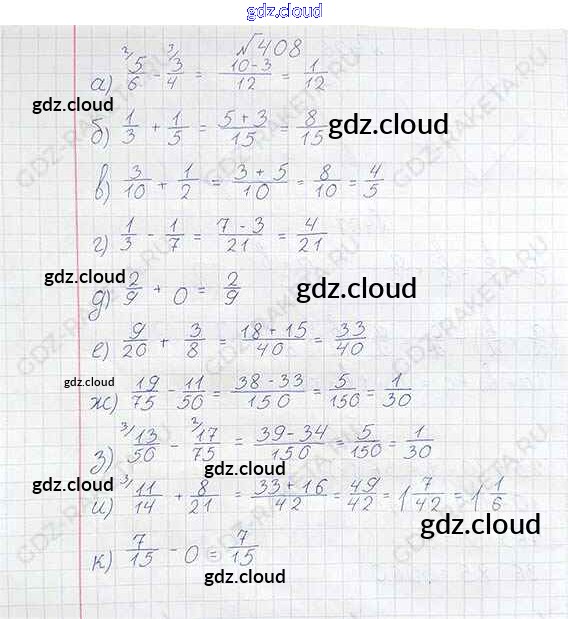 gdz.cloud
№408
а) ²⁄5/6 - ³⁄3/4 = (10-3)/12 = 1/12
gdz.cloud
б) 1/3 + 1/5 = (5+3)/15 = 8/15 gdz.cloud
в) 3/10 + 1/2 = (3+5)/10 = 8/10 = 4/5
г) 1/3 - 1/7 = (7-3)/21 = 4/21
gdz.cloud
д) 2/9 + 0 = 2/9 gdz.cloud
е) 9/20 + 3/8 = (18+15)/40 = 33/40
gdz.cloud
ж) 19/75 - 11/50 = (38-33)/150 = 5/150 = 1/30
з) ³⁄13/50 - ²⁄17/75 = (39-34)/150 = 5/150 = 1/30
gdz.cloud
gdz.cloud
и) ³⁄11/14 + 8/21 = (33+16)/42 = 49/42 = 1 7/42 = 1 1/6
gdz.cloud
к) 7/15 - 0 = 7/15
gdz.cloud
GDZ-RAKETA.RU